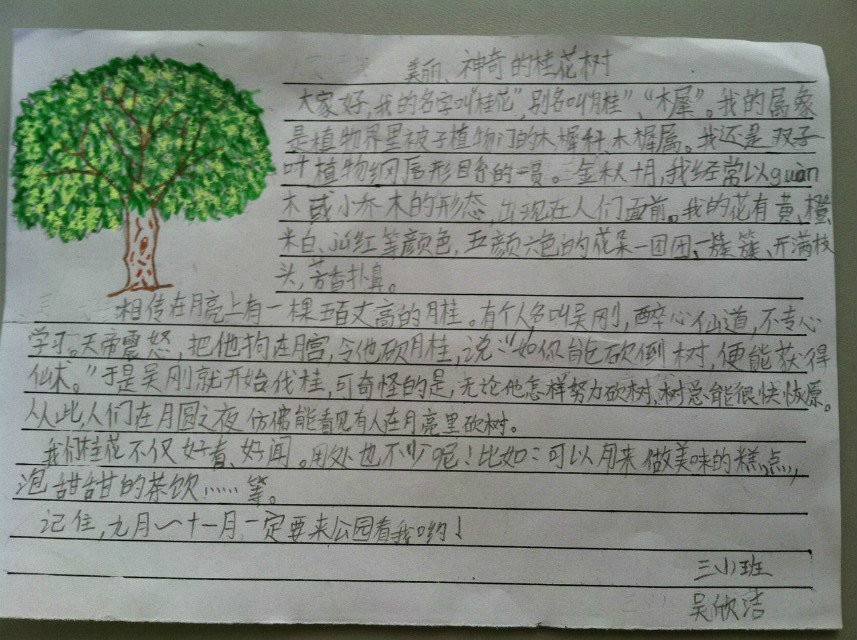 美丽、神奇的桂花树
大家好,我的名字叫“桂花”,别名叫“月桂”,“木犀”。我的属象
是植物界里被子植物门的木樨科木樨属。我还是双子
叶植物纲唇形目的一员。金秋十月,我经常以guàn
木或小乔木的形态,出现在人们面前。我的花有黄、橙、
米白、汕红等颜色,五颜六色的花朵一团团、一簇簇、开满枝
头,芳香扑鼻。
相传在月亮上有一棵五百丈高的月桂。有个人名叫吴刚,醉心仙道,不专心
学习。天帝震怒,把他拘在月宫,令他砍月桂,说:“如你能砍倒树,便能获得
仙术。”于是吴刚就开始伐桂,可奇怪的是,无论他怎样努力砍树,树总能很快恢原。
从此,人们在月圆之夜仿佛能看见有人在月亮里砍树。
我们桂花不仅好看、好闻。用处也不少呢!比如:可以用来做美味的糕点,
泡甜甜的茶饮……等。
记住,九月~十一月一定要来公园看我哟!
三小班
吴俶洁